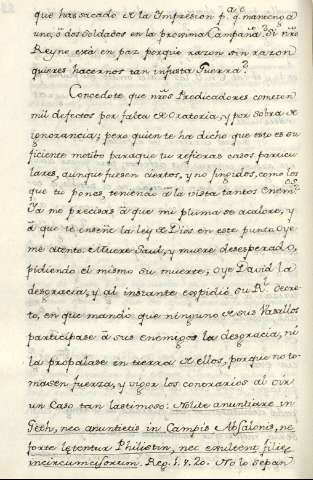 que has sacado de la Impresion p.a q.e mantenga
uno, ò dos Soldados en la proxima Campaña? Si nr̃o
Reyno està en paz porque razon sin razon
quieres hacernos tan injusta Guerra?
Concedote que nr̃os Predicadores cometen
mil defectos por falta de Oratoria, y por sobra de
ignorancia; pero quien te ha dicho que esto es su
ficiente motibo para que tu refieras casos particu
lares, aunque fuesen ciertos, y no fingidos, como los
que tu pones, teniendo à la vista tantos Enem.os
Ya me precisas à que mi pluma se acalore, y
à que te enseñe la ley de Dios en este punto. Oye
me atento. Muere Saul, y muere desesperado,
pidiendo èl mismo su muerte; oye David la
desgracia, y al instante expidiò su R.l decre
to, en que mandò que ninguno de sus Vasallos
participase à sus enemigos la desgracia, ni
la propalase en tierra de ellos, porque no to
masen fuerza, y vigor los contrarios al oir
un Caso tan lastimoso: Nolite anuntiare in
Geth, nec anuntietis in Campis Absalonis, ne
forte letentur Philistin, nec exultent filie
incircumcisorum. Reg. 1. v. 20. No lo sepan